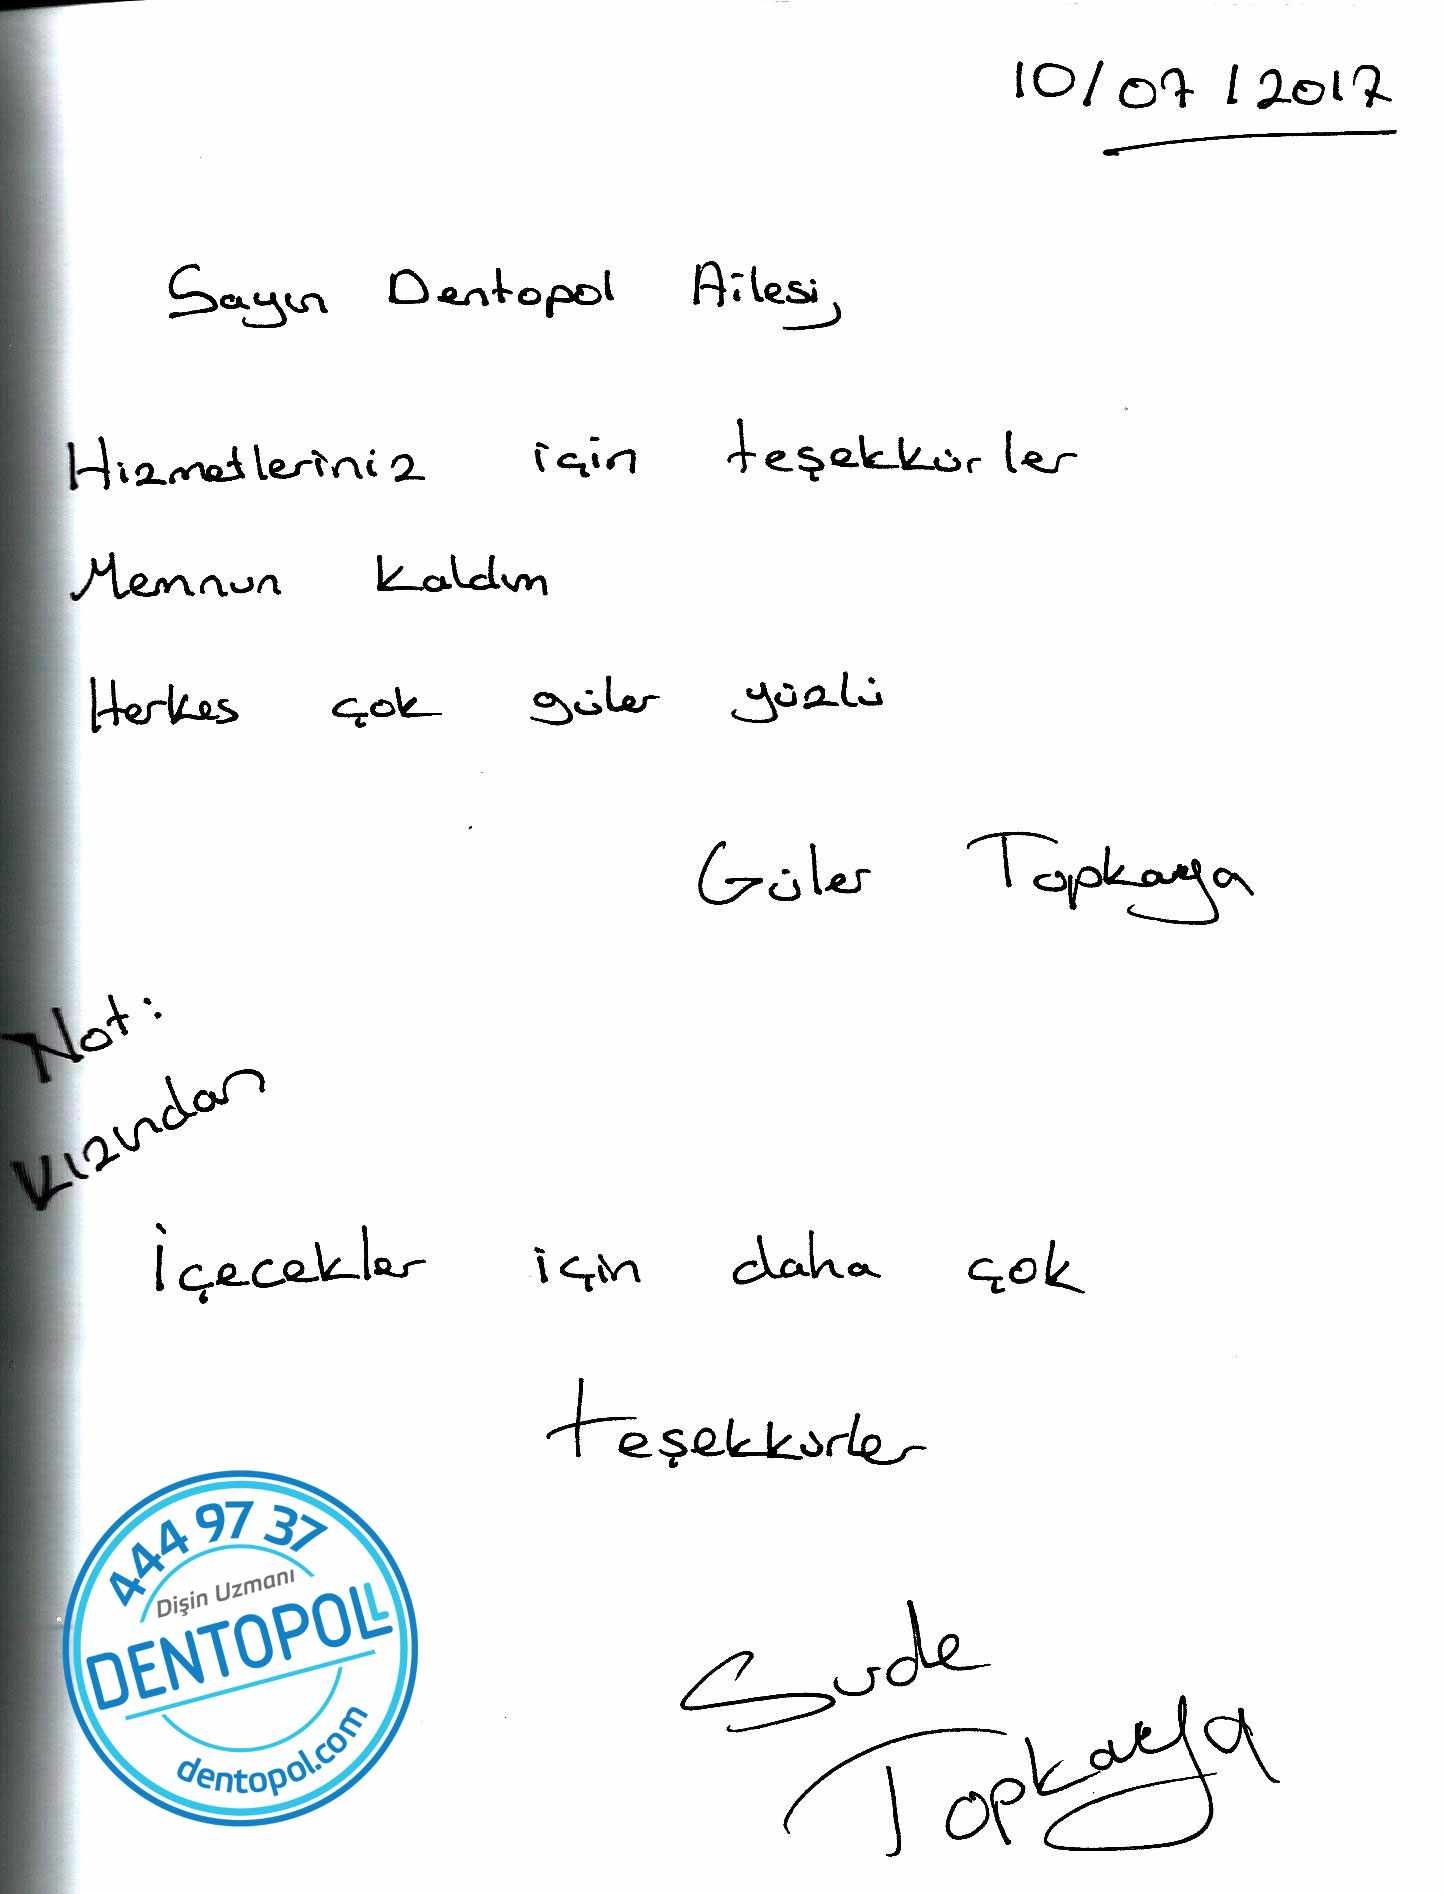 10/07/2017
Sayın Dentopol Ailesi,
Hizmetleriniz için teşekkürler
Memnun kaldım
Herkes çok güler yüzlü
Güler Topkaya
Not:
Kızından
İçecekler için daha çok
teşekkürler
Sude
Topkaya
444 97 37
Dişin Uzmanı
DENTOPOL
dentopol.com